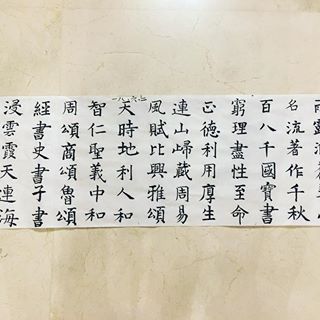 名流著作千秋
百八千國寶書
窮理盡性至命
正德利用厚生
連山歸藏周易
風賦比興雅頌
天時地利人和
智仁聖義中和
周頌商頌魯頌
經書史書子書
浸雲霞天連海